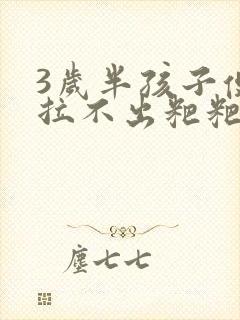 3歲半孩子便
拉不出粑粑
塵七七